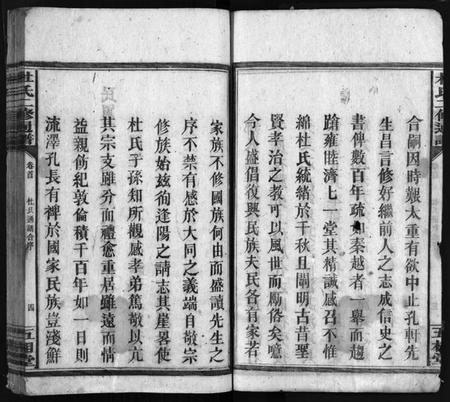 杜氏二修通譜
合嗣因時艱太重有欲中止孔軒先
生昌言修好繼前人之志成信史之
書俾數百年疏如秦越者一舉而趨
蹌雍睦濟七一堂其精誠感召不惟
綿杜氏統緒於千秋且闡明古昔聖
賢孝治之教可以風世而勵俗矣噫
今人盛倡復興民族夫民各有家若
家族不修國族何由而盛讀先生之
序不禁有感於大同之義端自敬宗
修族始茲徇逢陽之請志其崖畧使
杜氏子孫知所觀感孝弟篤敬以亢
其宗支雖分而禮愈重居雖遠而情
益親飭紀敦倫積千百年如一日則
流澤孔長有裨於國家民族豈淺鮮
杜氏二修通譜
卷首
四